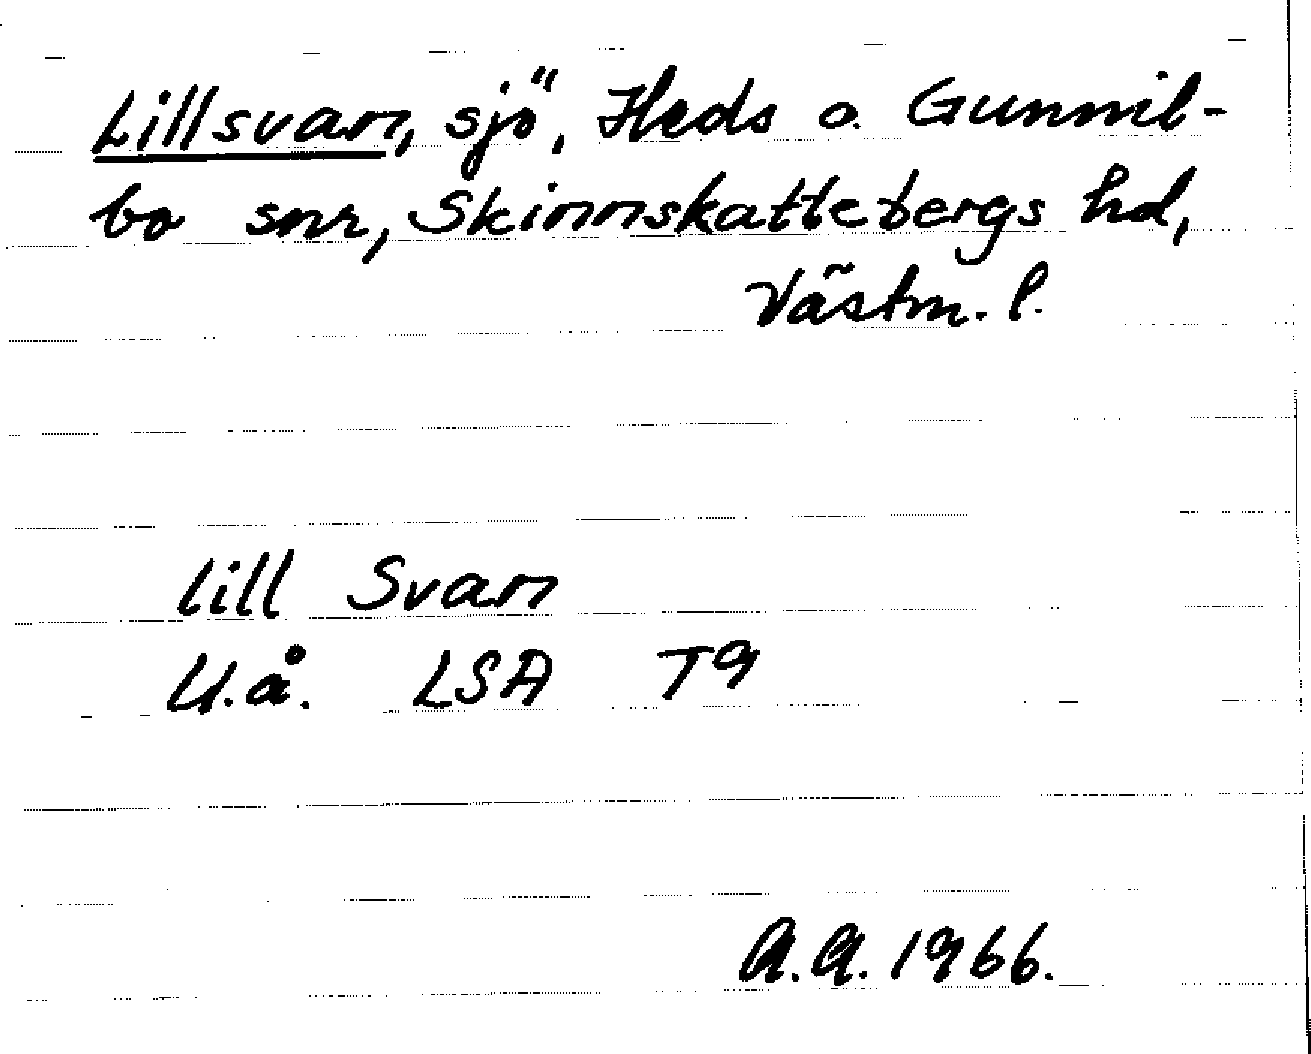 Lillsvan, sjö, Heds o. Gunnil-
bo snr, Skinnskattebergs hd,
Västm. l.
Lill Svan
U.å. LSA T9
A.A. 1966.